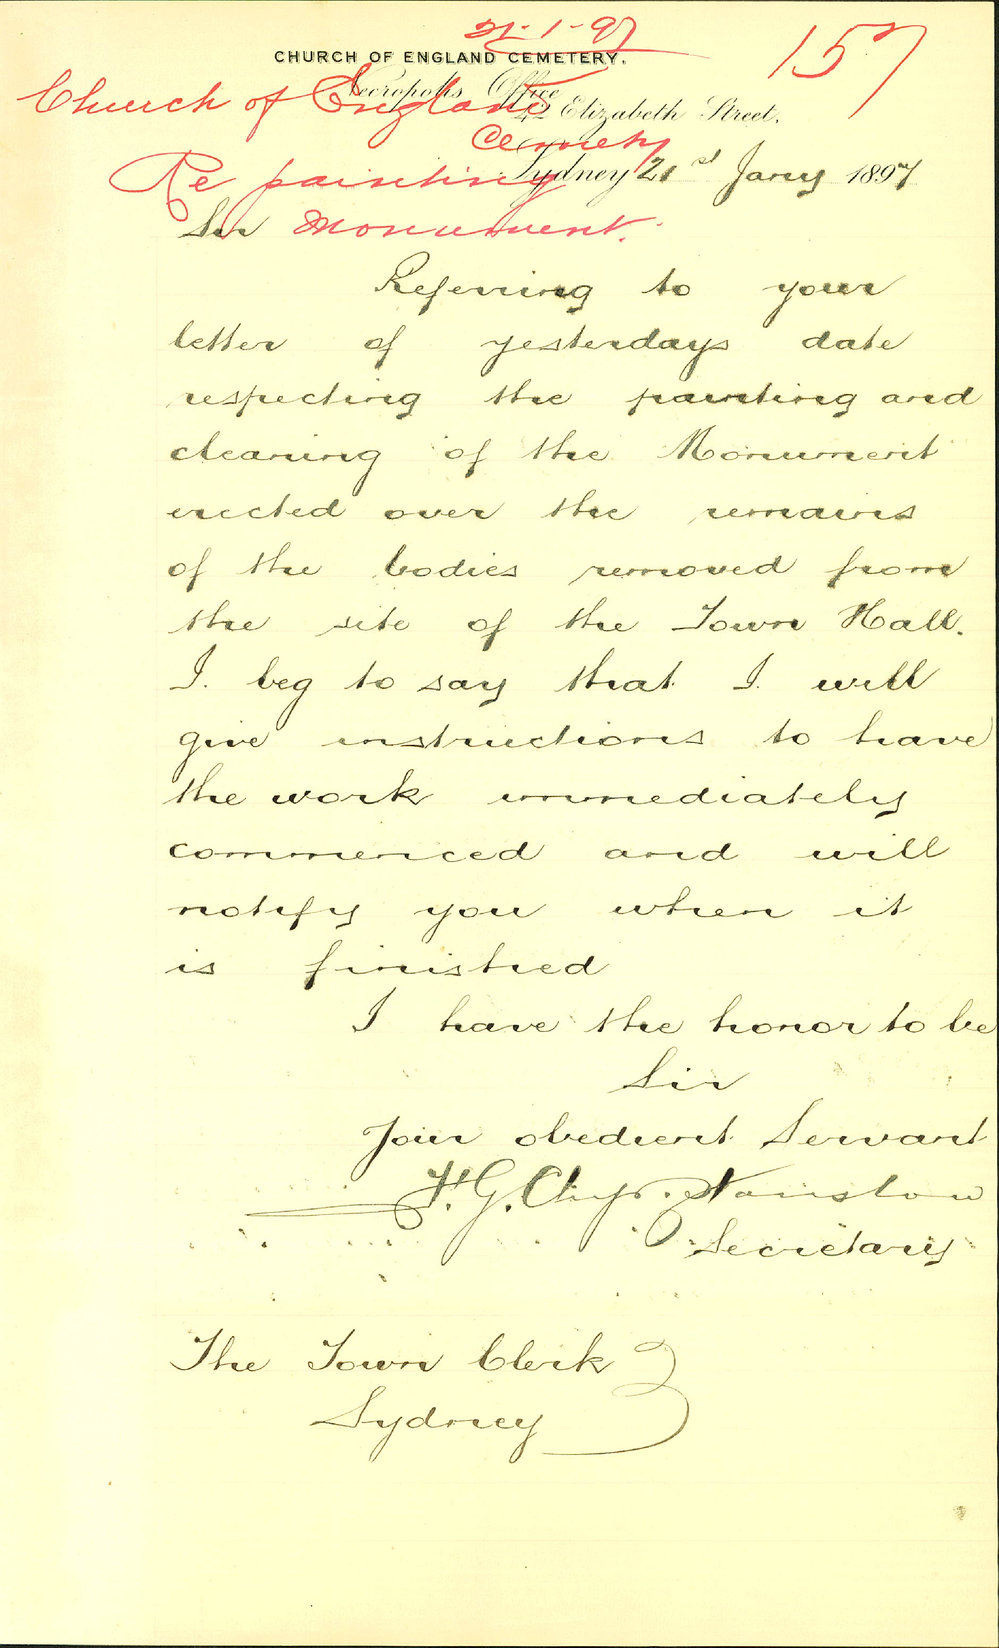 21-1-97
157
CHURCH OF ENGLAND CEMETERY.
Church of England
Cemetery
Necropolis Office
42 Elizabeth Street.
Sydney 21st Jany 1897
Re painting
Monument.
Sir
Referring to your
letter of yesterdays date
respecting the painting and
cleaning of the Monument
erected over the remains
of the bodies removed from
the site of the Town Hall.
I beg to say that I will
give instructions to have
the work immediately
commenced and will
notify you when it
is finished
I have the honor to be
Sir
Your obedient Servant
Secretary
The Town Clerk
Sydney